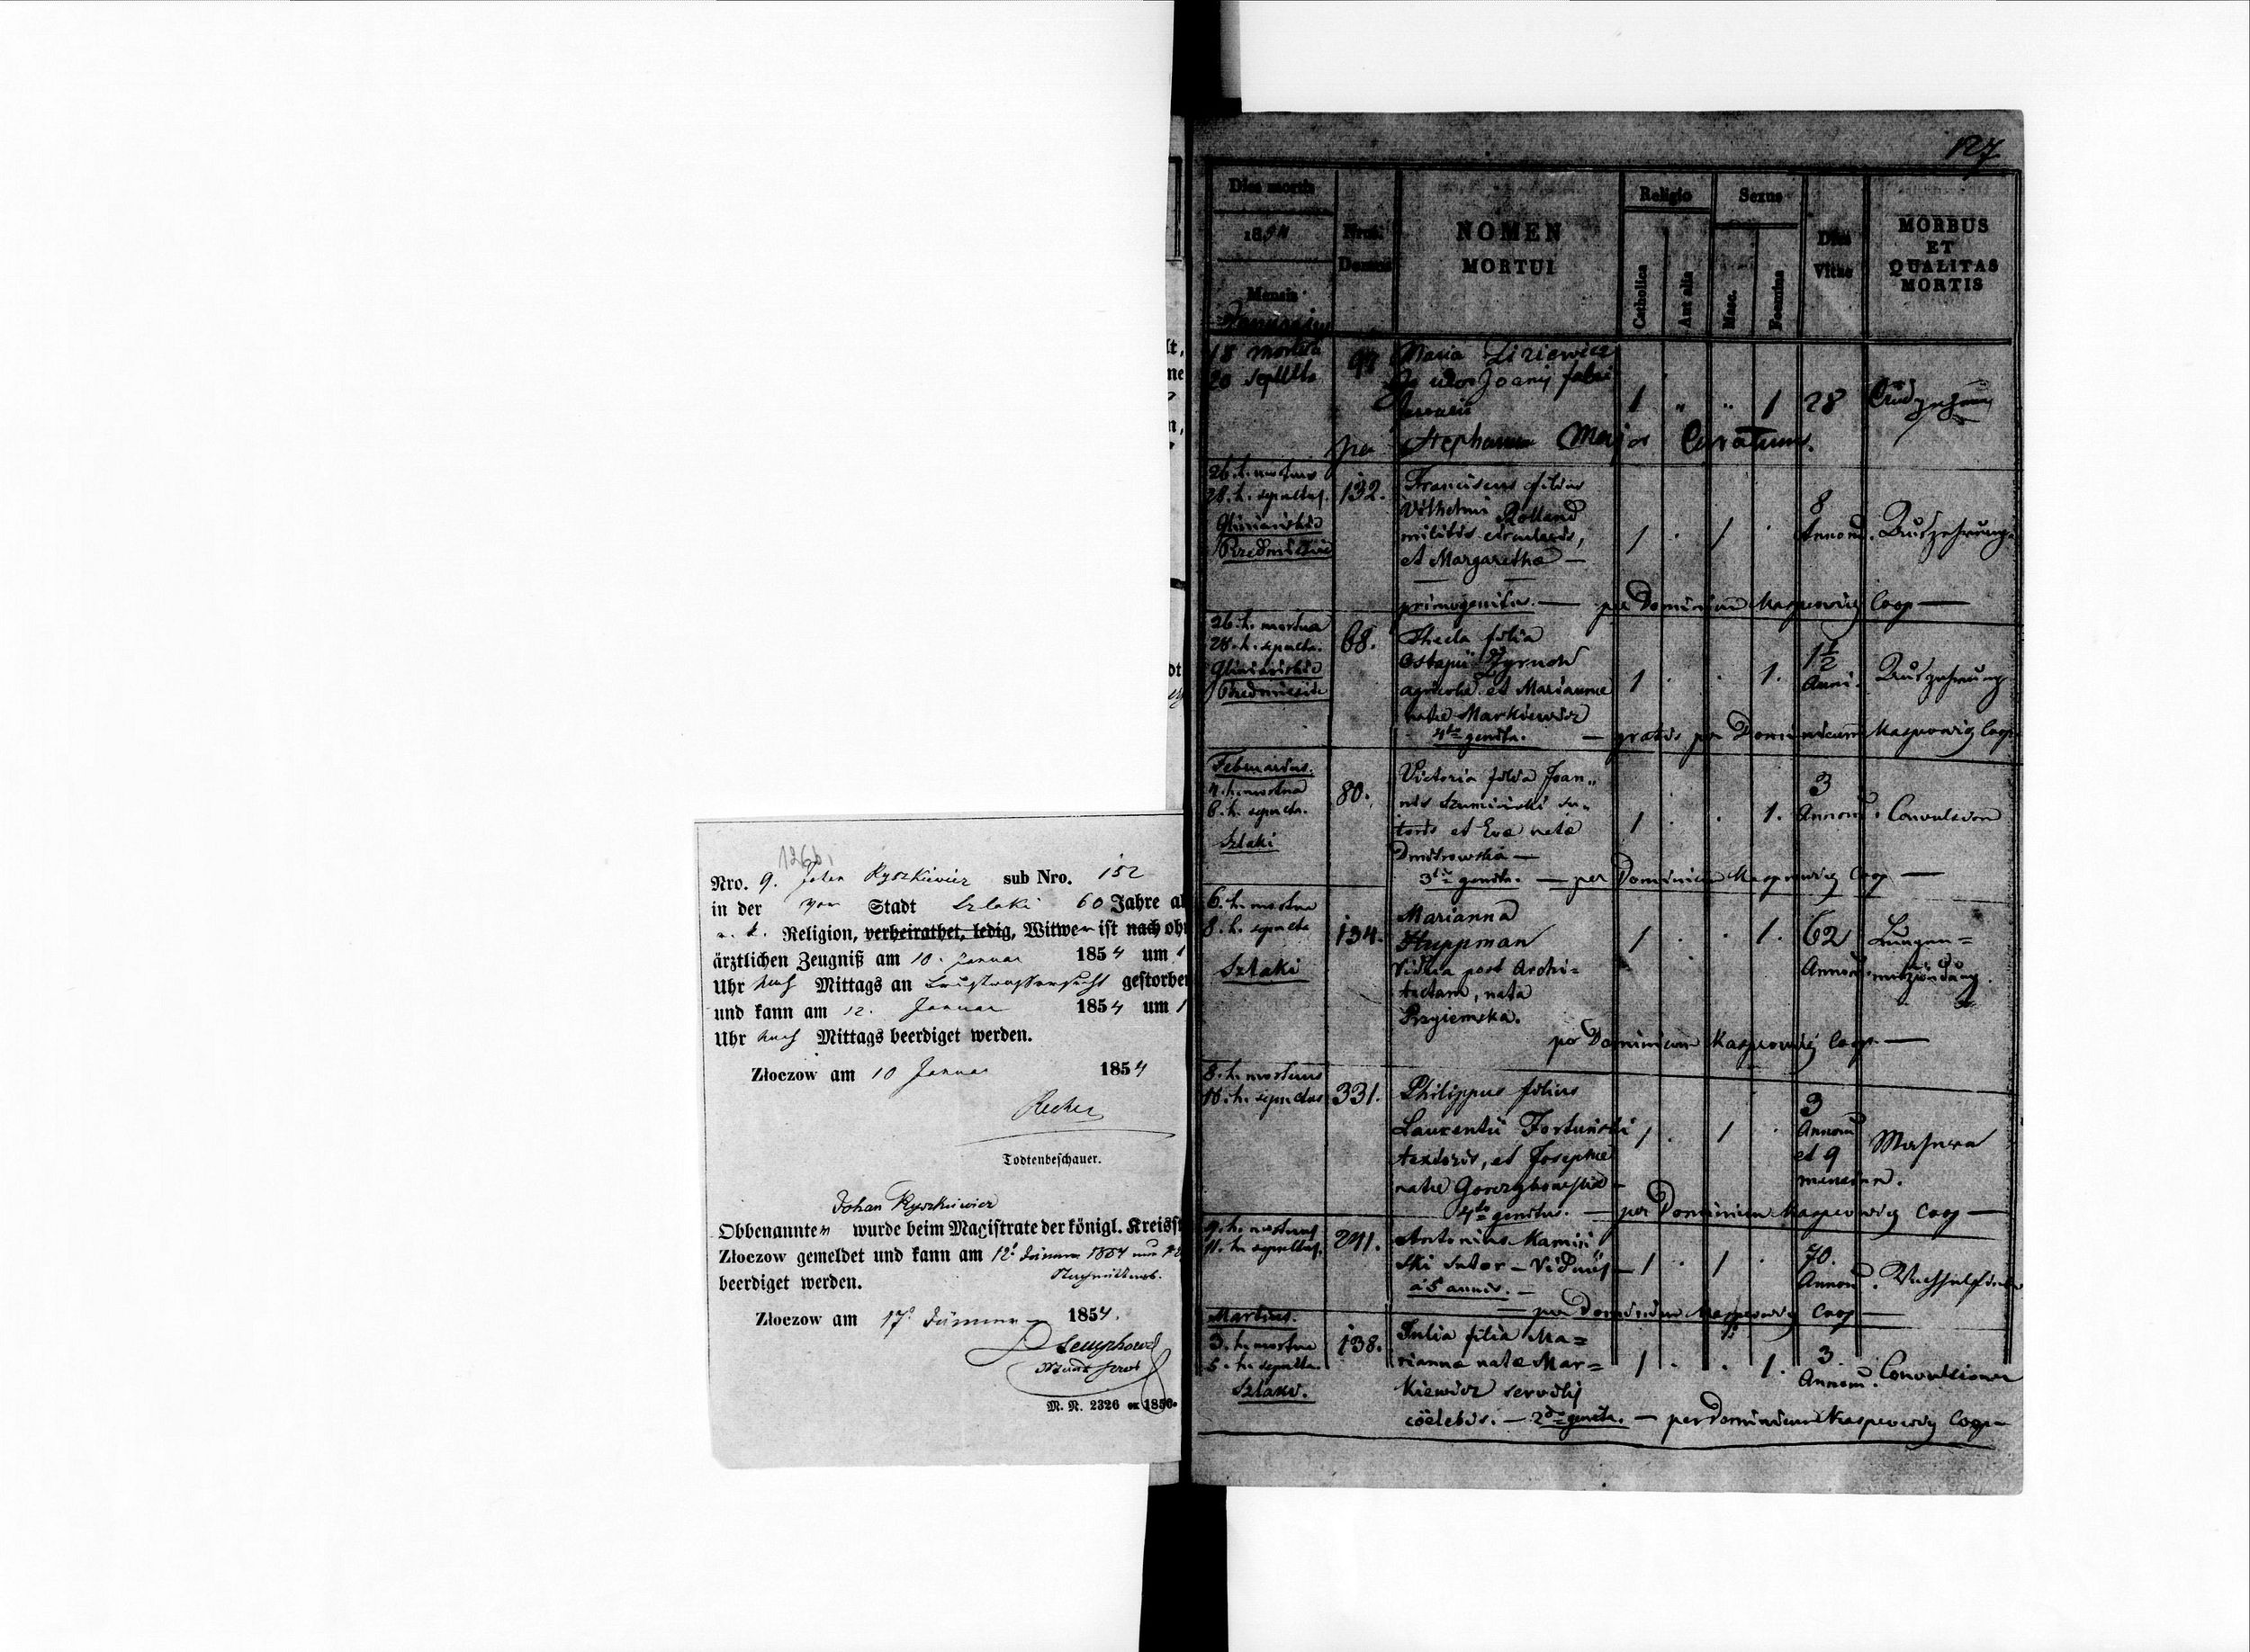 126b.
Nro. 9. Johan Ryszkiewicz sub Nro. 152
in der Vor Stadt Szlaki 60 Jahre al
r. k. Religion, verheirathet, ledig, Witwer ist nach oh
ärztlichen Zeugniß am 10. Januar 1854 um 1
Uhr Nach Mittags an Brustwassersucht gestorben
und kann am 12. Januar 1854 um 1
Uhr Nach Mittags beerdiget werden.
Złoczow am 10 Januar 1854
Todtenbeschauer.
Johan Ryszkiewicz
Obbenannten wurde beim Magistrate der königl. Kreisst
Złoczow gemeldet und kann am 12t Jänner 1854 um
beerdiget werden. Nachmittags.
Złoczow am Jänner 1854.
M. N. 2326 ex 1850.
127
Dies mortis
1854
Mensis
Januarius
Nrus. Domus
NOMEN
MORTUI
Religio
Catholica
Aut alia
Sexus
Masc.
Foemina
Dies
Vitae
MORBUS
ET
QUALITAS
MORTIS
18 mortua
20 sepulta
97
Maria
uxor Joanis fabri
1 " " 1 28
per Stephanum Major Curatum.
26. h. mortuus
28. h. sepultus.
Gliniańskie
Przedmieście
132.
Franciscus filius
Vilhelmi Rolland
militis circularis,
et Margaretha —
1 . 1 .
8
Annor. Auszehrung
primogenitus. — per Dominicum Kasprowicz Coop —
26. h. mortua
28. h. sepulta.
Gliniańskie
Przedmieście
68.
Thecla filia
Ostapii
agricola et Marianna
nata Markiewicz
4to genita. — gratis per Dominicum Kasprowicz Coop
1 . . 1.
1½
Anni. Auszehrung
Februarius.
4. h. mortua
6. h. sepulta.
Szlaki
80.
Victoria filia Joan„
nis Szumiński su„
toris et Eva nata
Dmitrowska —
1 . . 1.
3
Annor. Convulsion
3tio genita. — per Dominicum Kasprowicz Coop —
6. h. mortua
8. h. sepulta
Szlaki
134.
Marianna
Huppman
Vidua post Archi=
tectam, nata
Przyiemska.
1 . . 1.
62
Annor.
Lungen=
entzündung
per Dominicum Kasprowicz Coop —
8. h. mortuus
10. h. sepultus
331.
Philippus filius
Laurentii Fortuński
textoris, et Josepha
nata
1 . 1 .
3
Annor.
et 9
mensium.
4to genitus. — per Dominicum Kasprowicz Coop —
9. h. mortuus
11. h. sepultus.
241.
Antonius Kamiń
ski sutor — Viduus —
a 5 annis. —
1 . 1 .
70.
Annor.
— per Dominicum Kasprowicz Coop —
Martius.
3. h. mortua
5. h. sepulta.
Szlaki.
138.
Julia filia Ma=
rianna nata Mar=
kiewicz servilis
coelebis. — 2do genita. — per Dominicum Kasprowicz Coop —
1 . . 1.
3.
Annor. Convulsionen